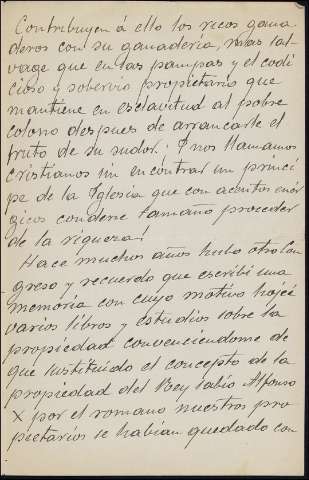 Contribuyen á ello los ricos gana-
deros con su ganaderia, mas sal-
vage que en las pampas y el codi-
cioso y sobervio propietario que
mantiene en esclavitud al pobre
colono despues de arrancarle el
fruto de su sudor. Y nos llamamos
cristianos sin encontrar un princi
pe de la Iglesia que con acentos enér
gicos condene tamaño proceder
de la riqueza!
Hace muchos años hubo otro Con
greso y recuerdo que escribi una
memoria con cuyo motivo hojeé
varios libros y estudios sobre la
propiedad convenciendome de
que sustituido el concepto de la
propiedad del Rey sabio Alfonso
X por el romano nuestros pro
pietarios se habian quedado con